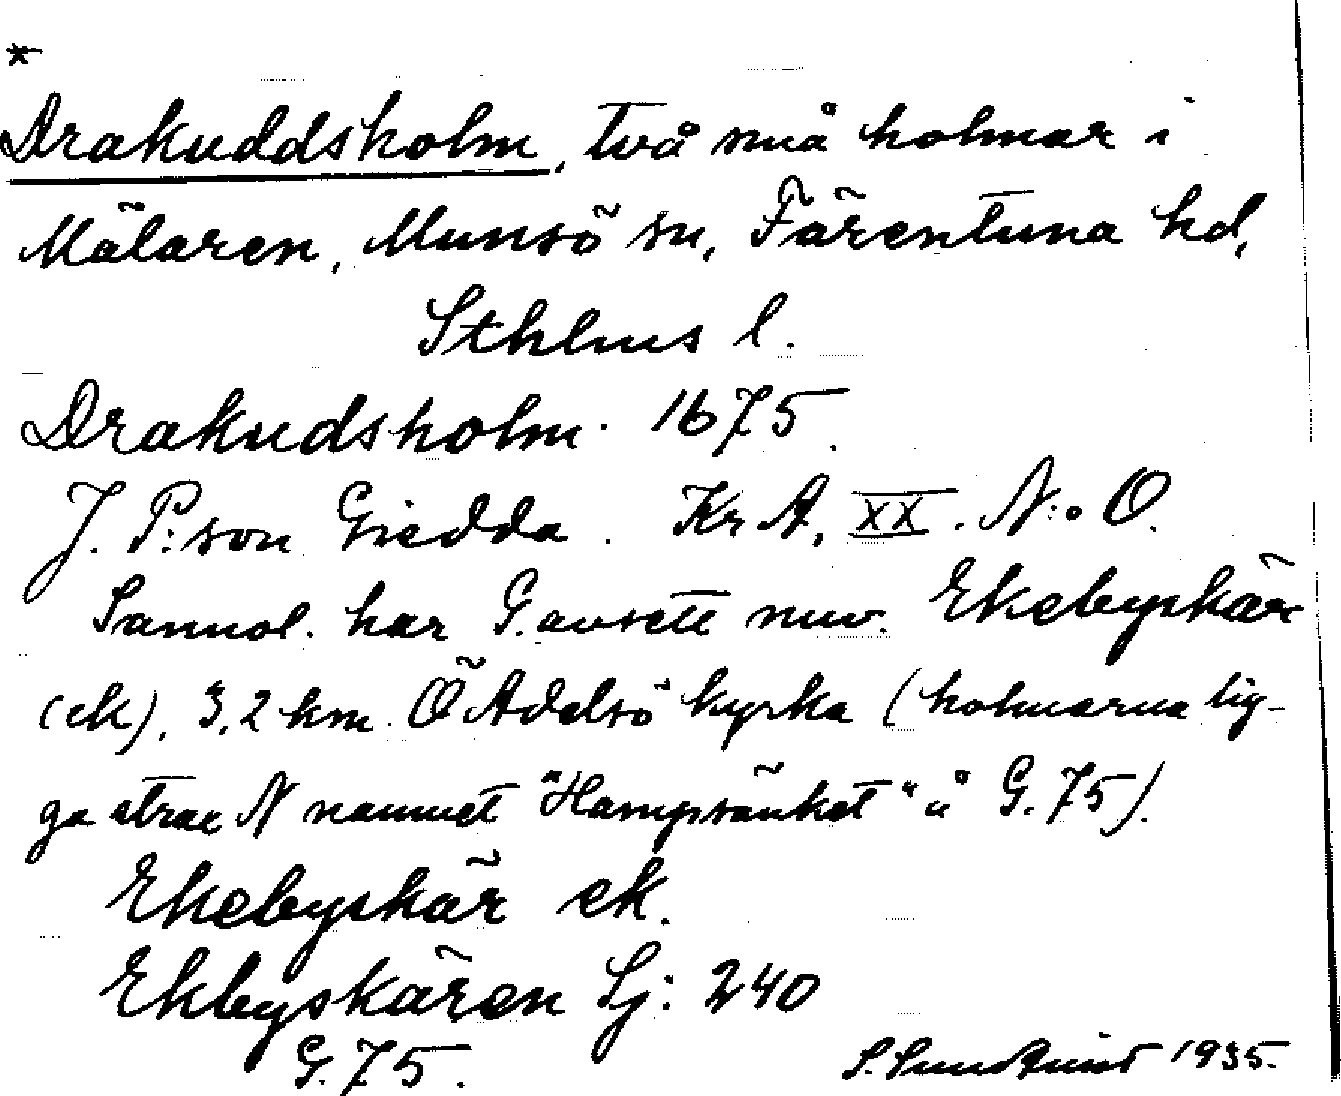 *
Drakuddsholm, två små holmar i
Mälaren, Munsö sn, Färentuna hd,
Sthlms l.
Drakudsholm. 1675.
J. P:son Giedda. Kr A. XX. N:o O.
Sannol. har G. avsett nuv. Ekebyskär
(ek), 3,2 km Ö Adelsö kyrka (holmarna lig-
ga strax N namnet "Hampsänket" å G. 75).
Ekebyskär ek.
Ekbyskären Sj: 240
G. 75.
S. Sundkvist 1935.